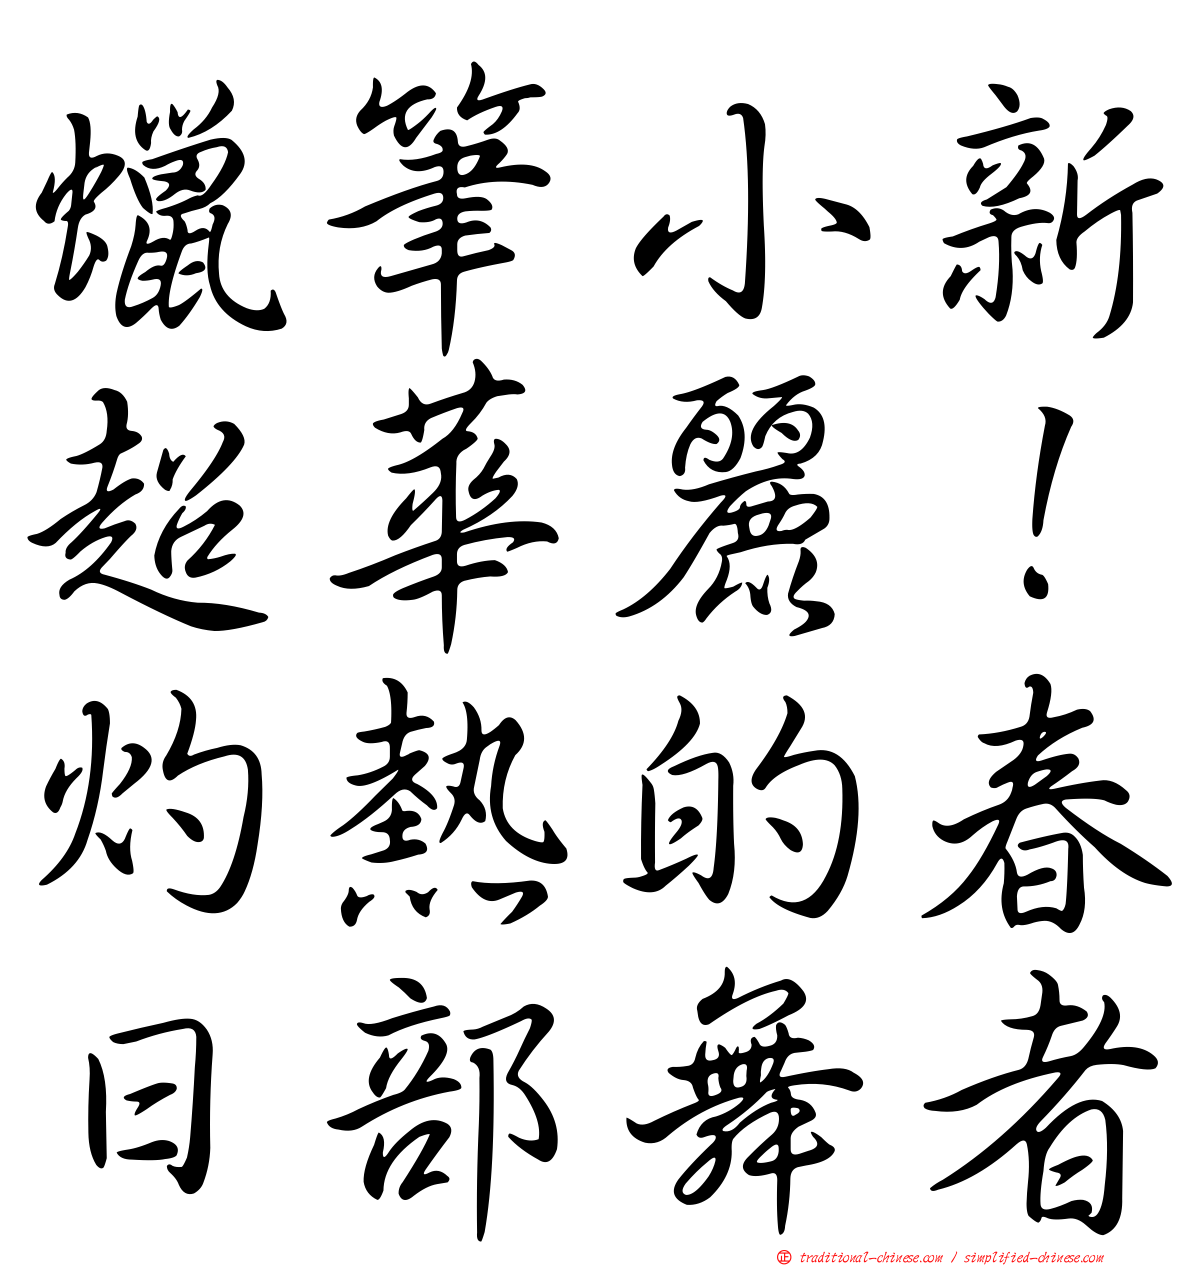 蠟筆小新
超華麗！
灼熱的春
日部舞者
正 traditional-chinese.com / simplified-chinese.com